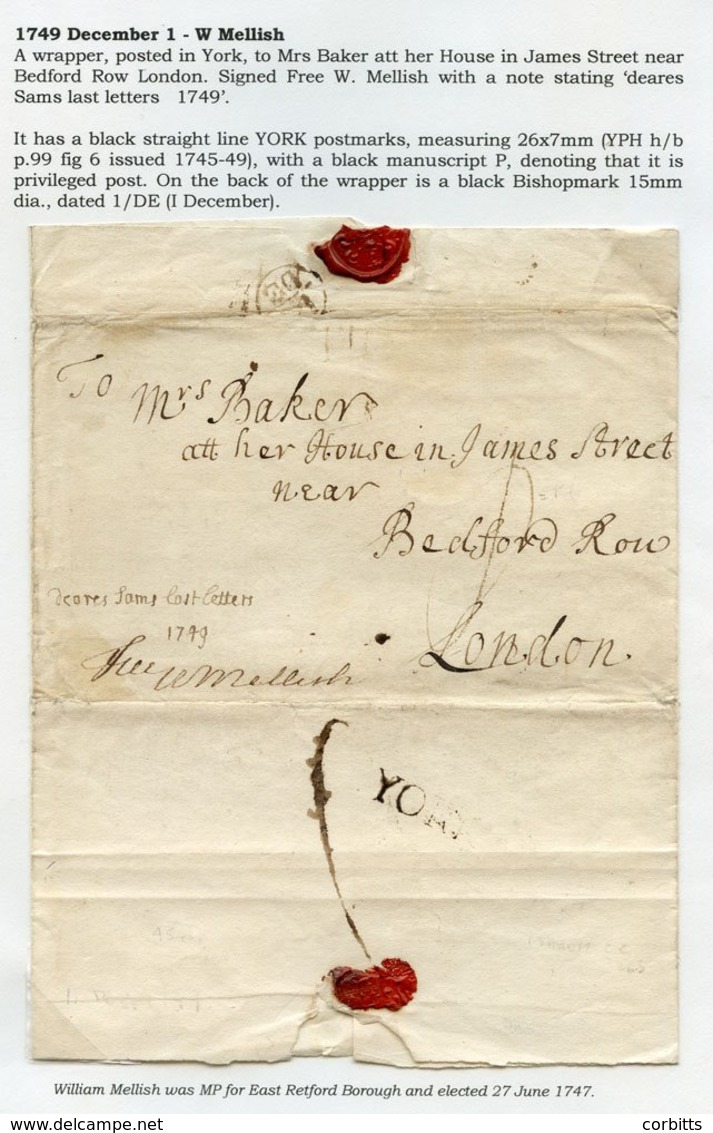 1749 December 1 - W Mellish
A wrapper, posted in York, to Mrs Baker att her House in James Street near
Bedford Row London. Signed Free W. Mellish with a note stating ‘deares
Sams last letters 1749’.
It has a black straight line YORK postmarks, measuring 26x7mm (YPH h/b
p.99 fig 6 issued 1745-49), with a black manuscript P, denoting that it is
privileged post. On the back of the wrapper is a black Bishopmark 15mm
dia., dated 1/DE (I December).
DE
To Mrs Baker
att her House in James Street
near
Bedford Row
deares Sams last letters
1749
London.
Free W Mellish
YORK
William Mellish was MP for East Retford Borough and elected 27 June 1747.
www.delcampe.net
corbitts